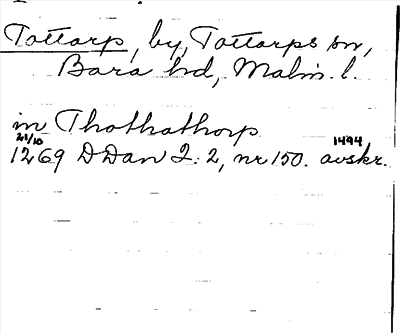 Tottarp, by, Tottarps sn,
Bara hd, Malm. l.
in Thothathorp
21/10 1494
1269 DDan 2:2, nr 150. avskr.